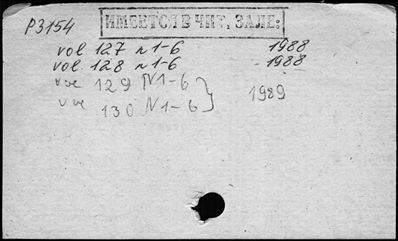 P3154
ИМЕЕТСЯ В ЧИТ. ЗАЛЕ:
vol 127 n 1-6 1988
vol. 128 n 1-6 1988
vol 129 N 1-6
vol 130 N 1-6 } 1989